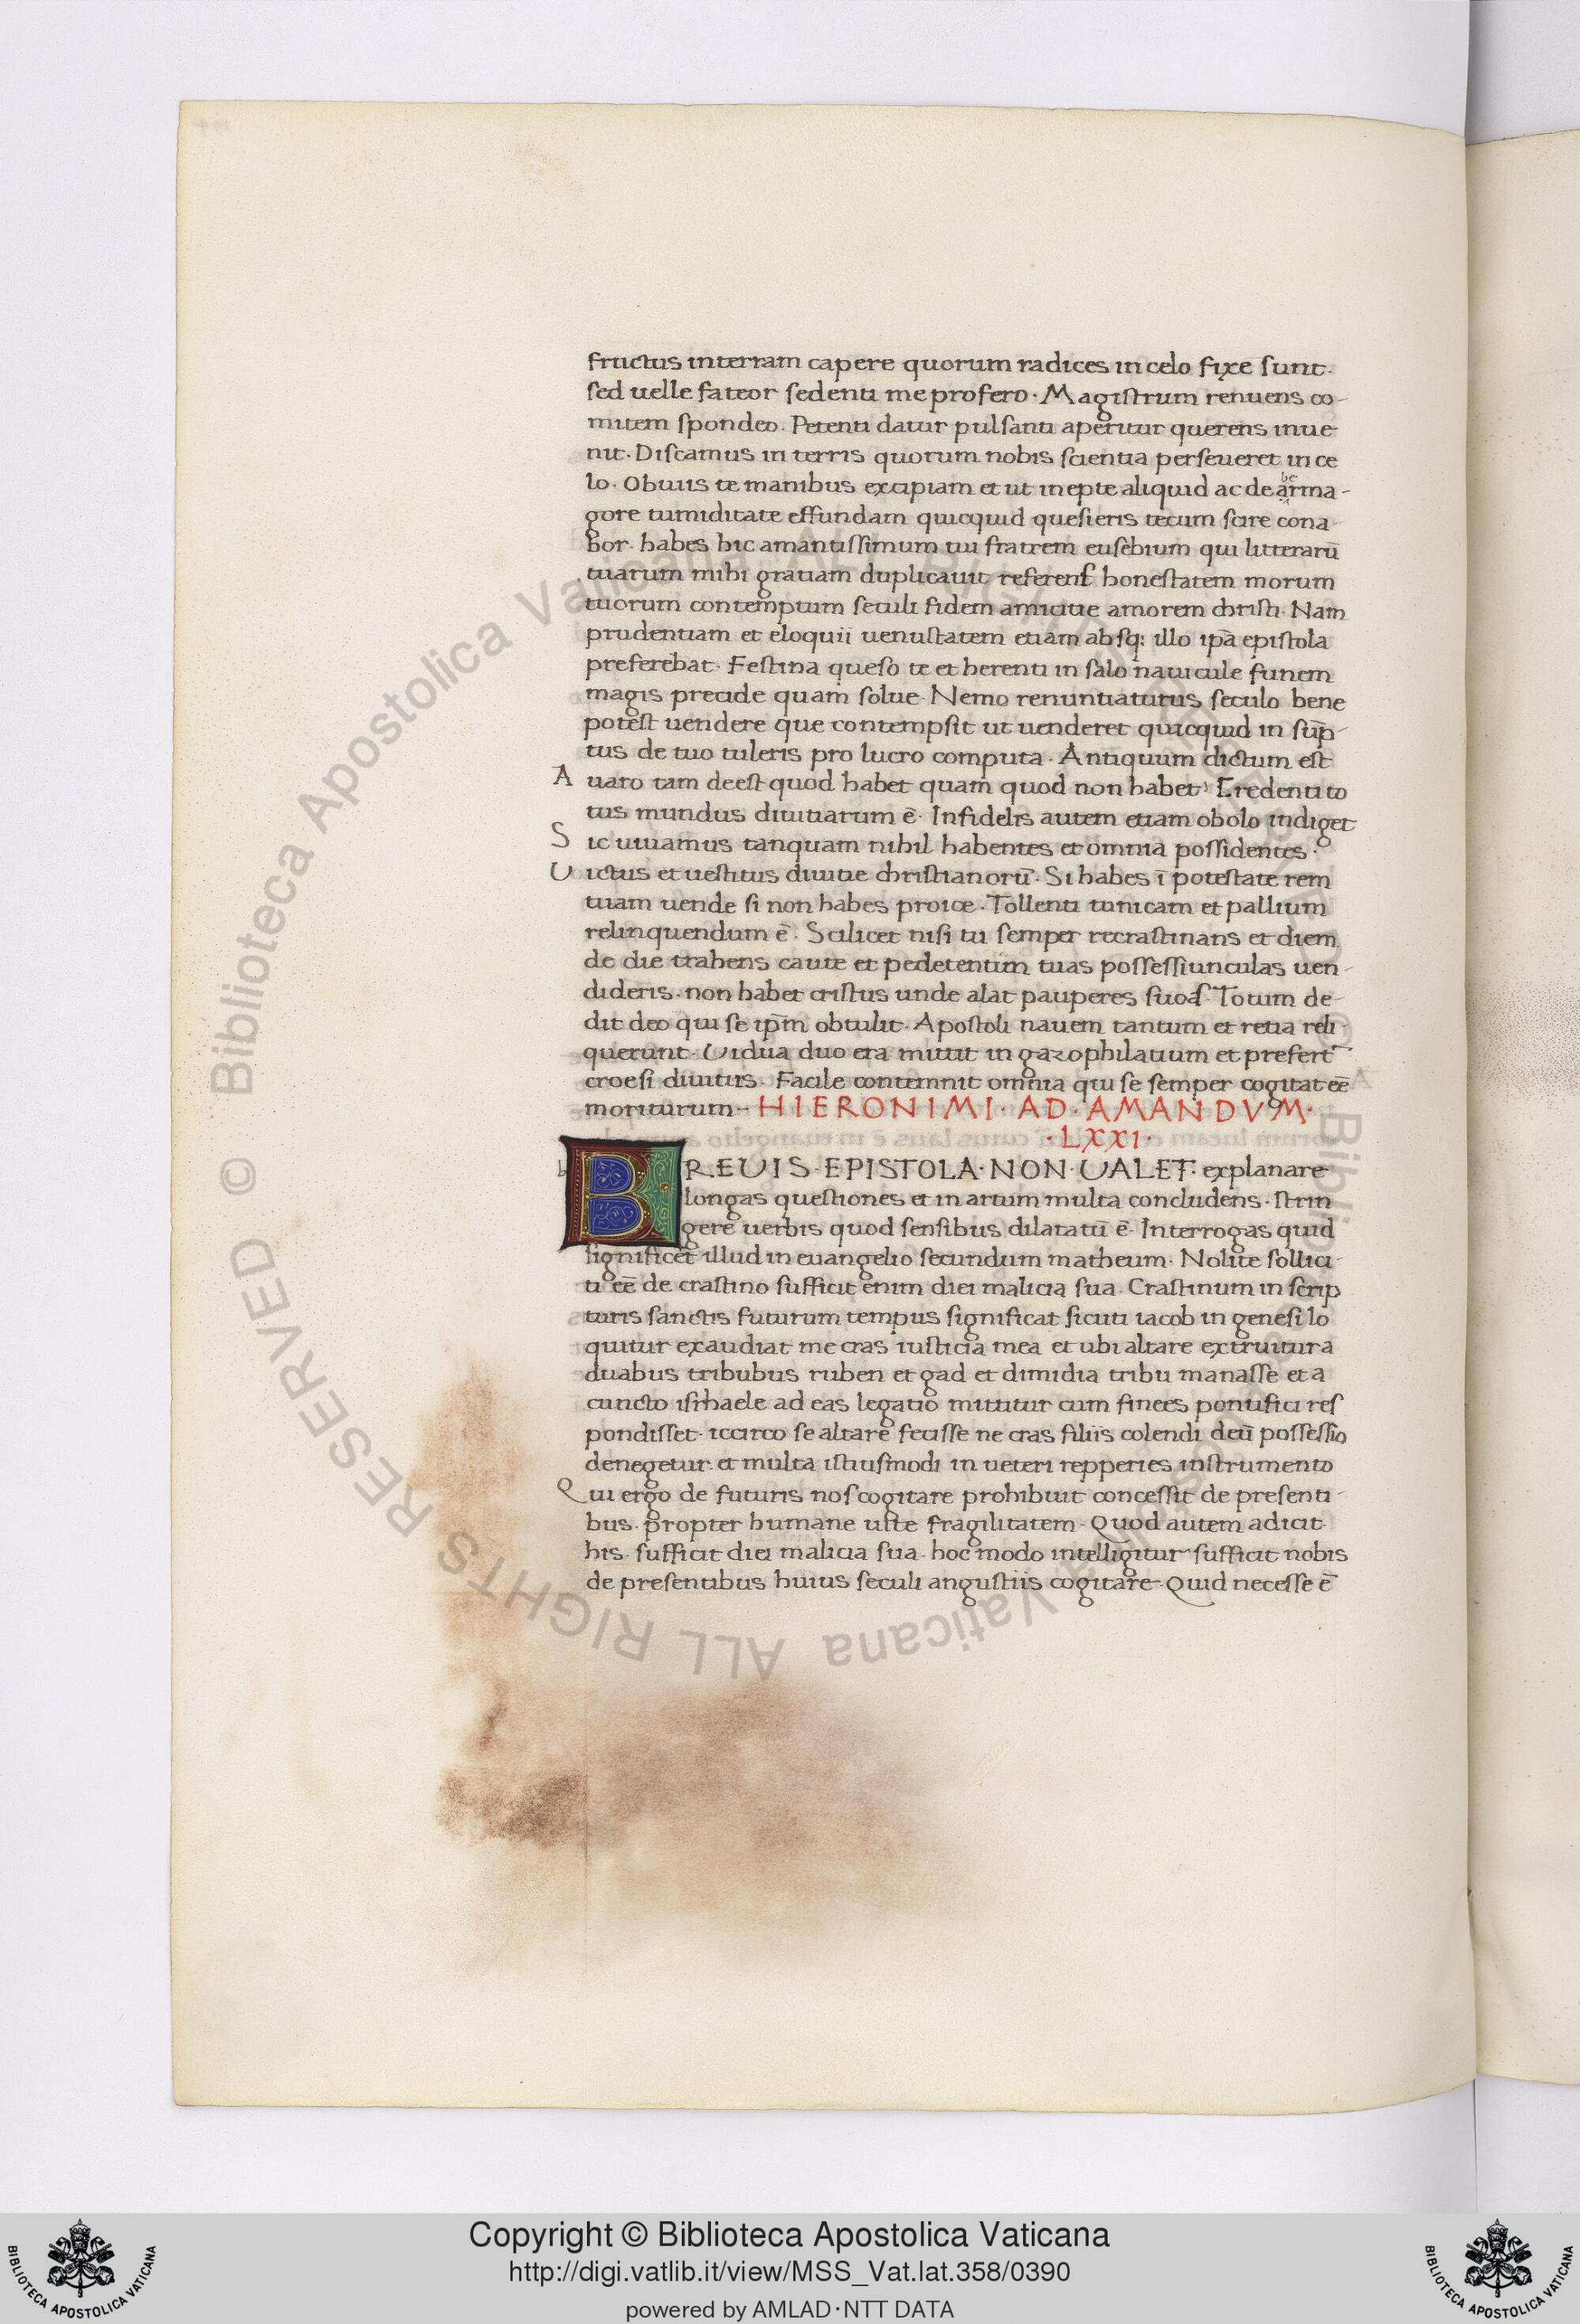 fructus in terram capere quorum radices in celo fixe sunt.
sed uelle fateor sedenti me profero. Magistrum renuens co-
mitem spondeo. Petenti datur pulsanti aperitur querens inue
nit. Discamus in terris quorum nobis scientia perseueret in ce
lo. Obuiis te manibus excipiam et ut inepte aliquid ac de arma-
gore tumiditate effundam quicquid quesieris tecum scire cona
bor. habes hic amantissimum tui fratrem eusebium qui litterarū
tuarum mihi gratiam duplicauit referens honestatem morum
tuorum contemptum seculi fidem amicitie amorem christi. Nam
prudentiam et eloquii uenustatem etiam absq; illo ipā epistola
preferebat. Festina queso te et herenti in salo nauicule funem
magis precide quam solue. Nemo renuntiaturus seculo bene
potest uendere que contempsit ut uenderet quicquid in sūp-
tus de tuo tuleris pro lucro computa. Antiquum dictum est
Auaro tam deest quod habet quam quod non habet. Credenti to
tus mundus diuitiarum ē. Infidelis autem etiam obolo indiget
Sic uiuamus tanquam nihil habentes et omnia possidentes.
Uictus et uestitus diuitie christianorū. Si habes ī potestate rem
tuam uende si non habes proice. Tollenti tunicam et pallium
relinquendum ē. Scilicet nisi tu semper recrastinans et diem
de die trahens caute et pedetentim tuas possessiunculas uen-
dideris. non habet cristus unde alat pauperes suos. Totum de-
dit deo qui se ip̄m obtulit. Apostoli nauem tantum et retia reli-
querunt. Uidua duo era mittit in gazophilatium et prefert
croesi diuitiis. Facile contemnit omnia qui se semper cogitat eē
moriturum- HIERONIMI. AD. AMANDVM.
.LXXI.
BREUIS. EPISTOLA. NON. UALET. explanare
longas questiones et in artum multa concludens. strin
gere uerbis quod sensibus dilatatū ē. Interrogas quid
significet illud in euangelio secundum matheum. Nolite sollici-
ti eē de crastino sufficit enim diei malicia sua. Crastinum in scrip
turis sanctis futurum tempus significat sicuti iacob in genesi lo
quitur exaudiat me cras iusticia mea et ubi altare extruitur a
duabus tribubus ruben et gad et dimidia tribu manasse et a
cuncto isrhaele ad eas legatio mittitur cum finees pontifici res
pondisset. iccirco se altare fecisse ne cras filiis colendi deū possessio
denegetur. et multa istiusmodi in ueteri repperies instrumento
Qui ergo de futuris nos cogitare prohibuit concessit de presenti-
bus. propter humane uite fragilitatem. Quod autem adicit
his. sufficit diei malicia sua. hoc modo intelligitur sufficit nobis
de presentibus huius seculi angustiis cogitare. Quid necesse ē
Copyright © Biblioteca Apostolica Vaticana
http://digi.vatlib.it/view/MSS_Vat.lat.358/0390
powered by AMLAD·NTT DATA